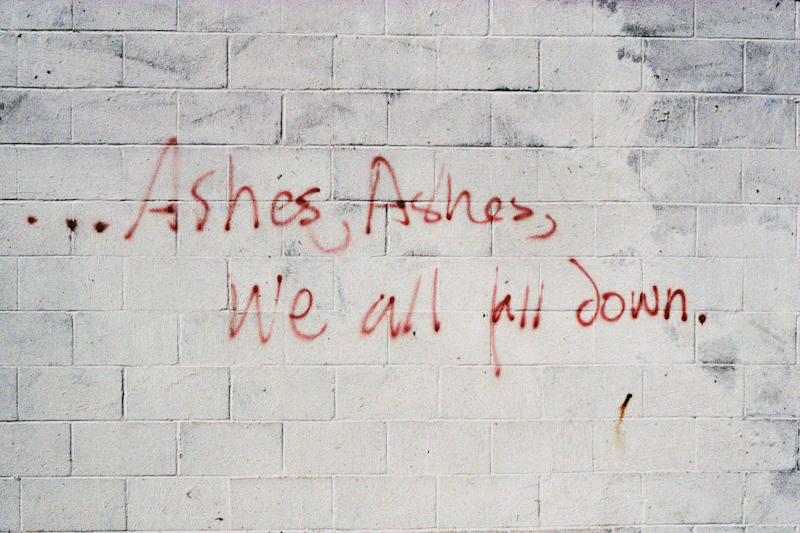 ...Ashes, Ashes,
We all fall down.